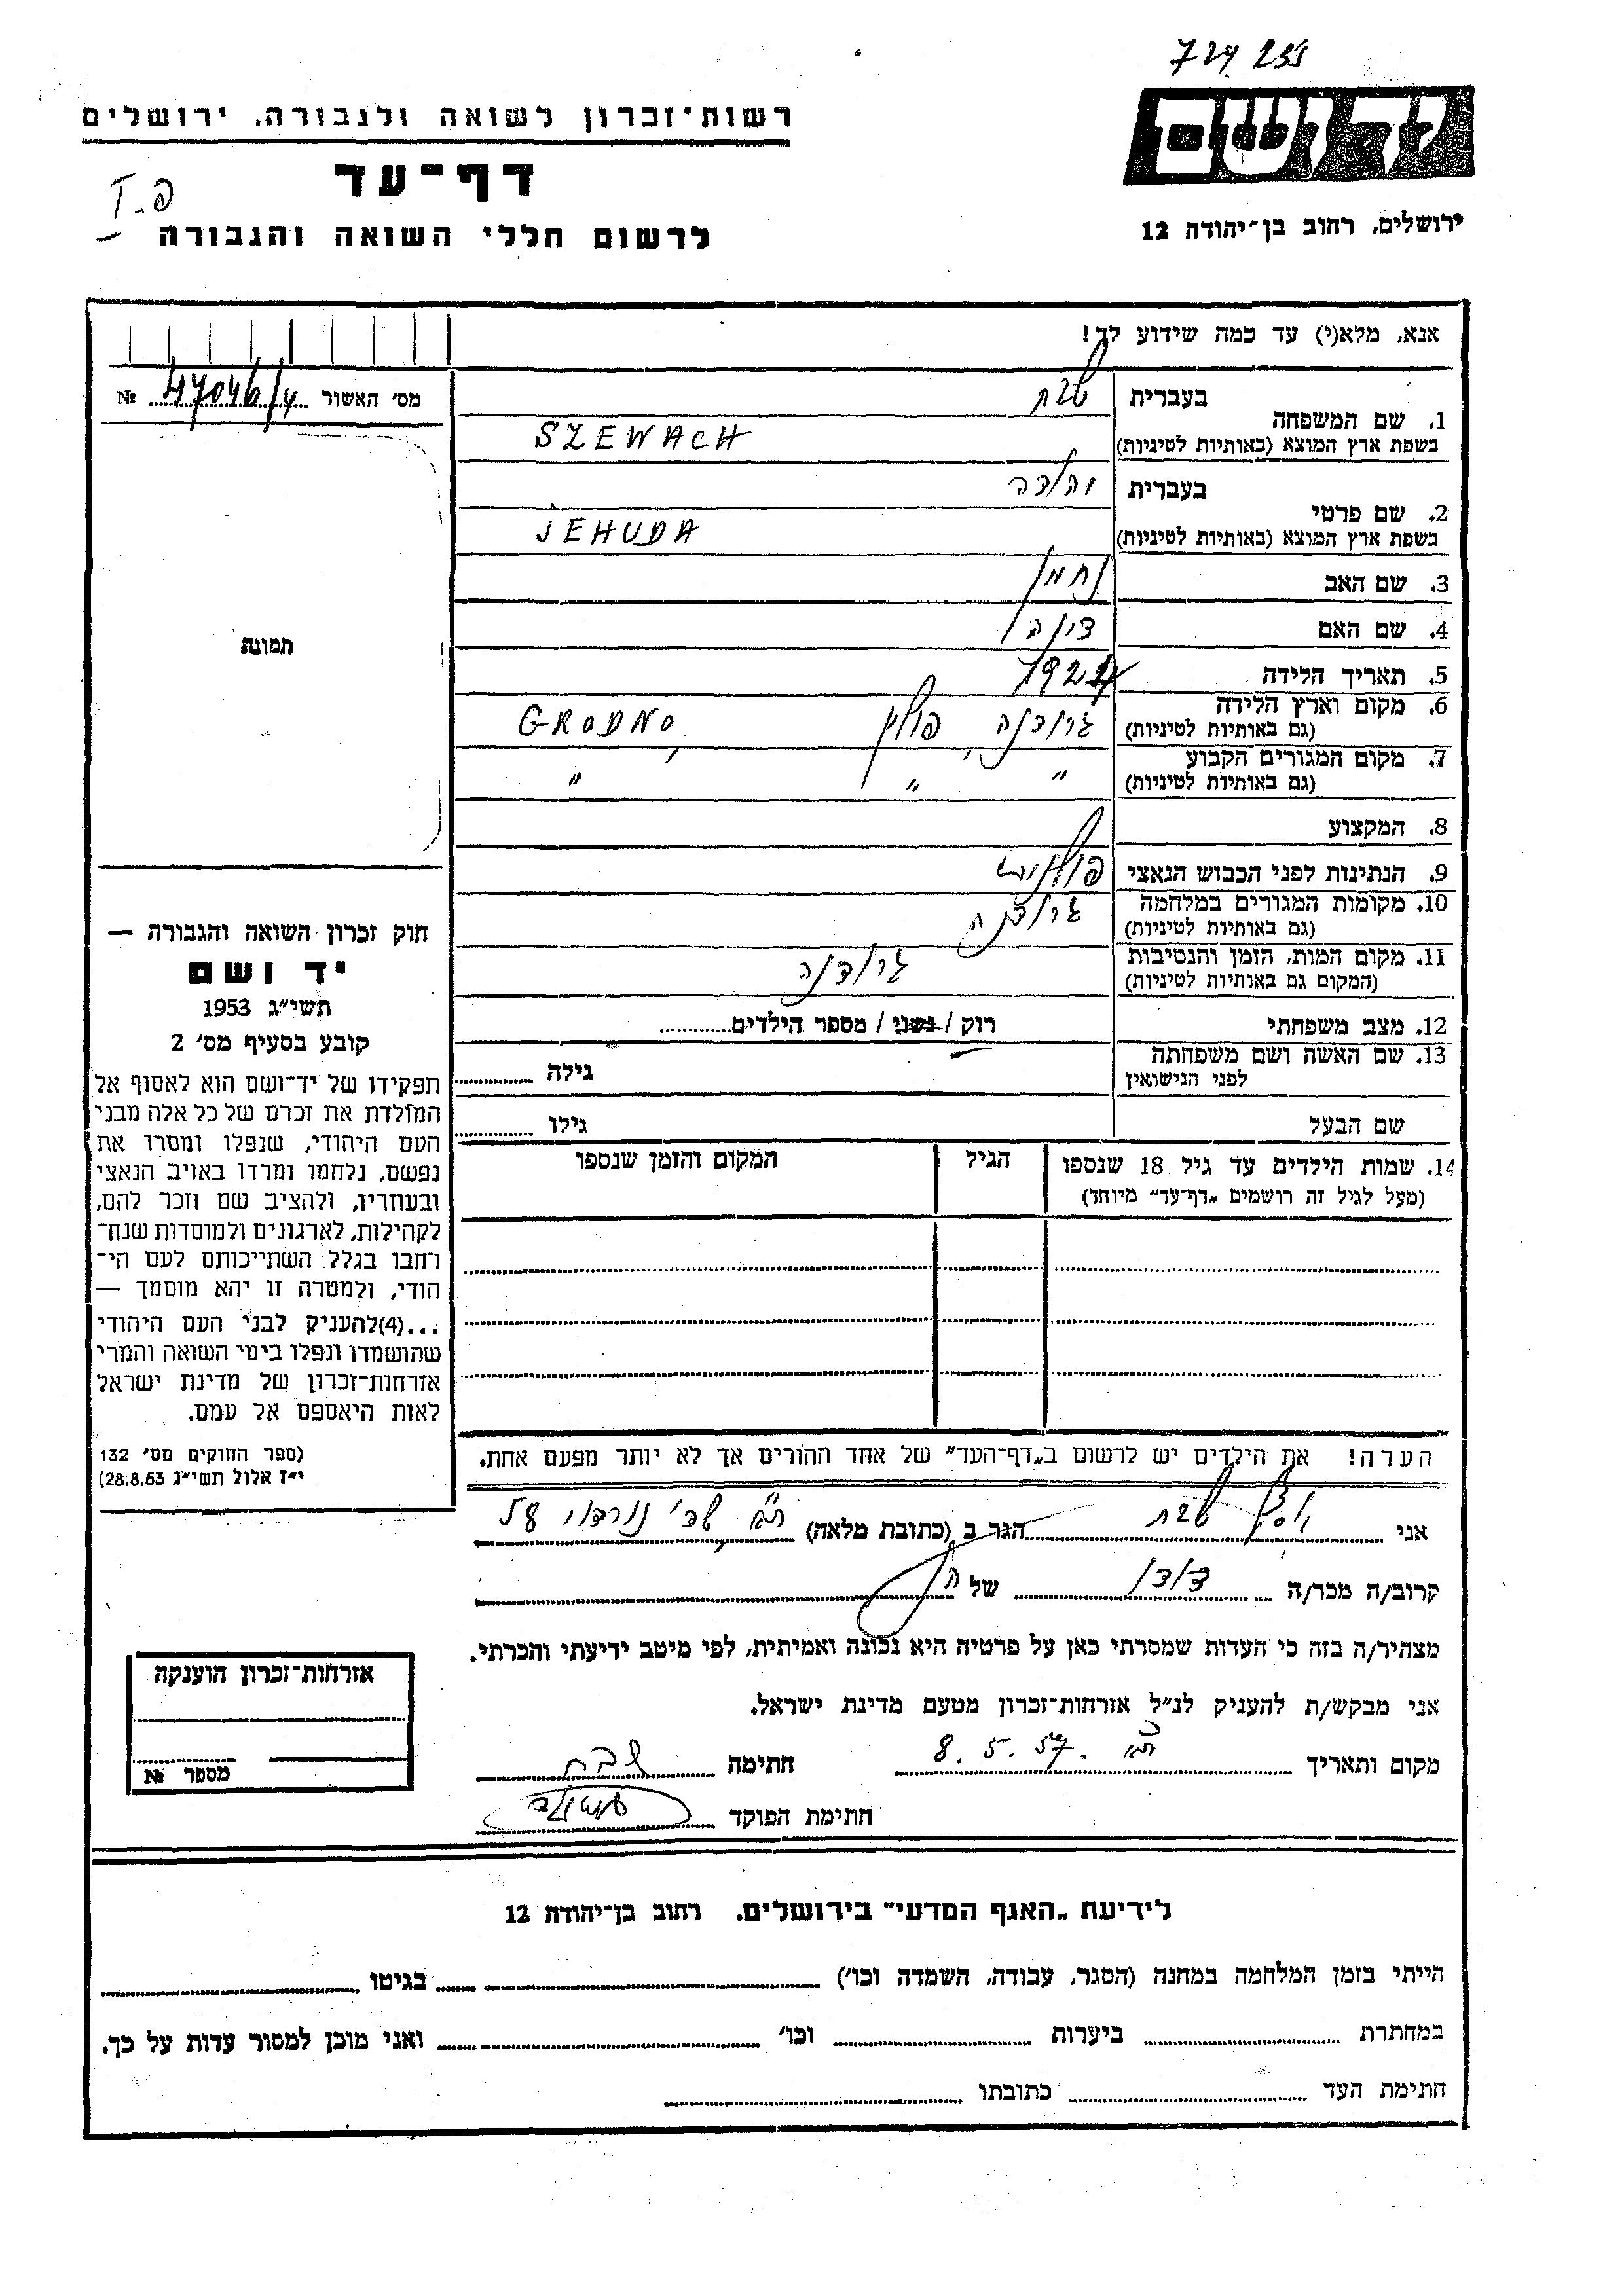 724 255
יד ושם
רשות־זכרון לשואה ולגבורה, ירושלים
דף־עד
לרשום חללי השואה והגבורה
ירושלים, רחוב בן־יהודה 12
אנא, מלא(י) עד כמה שידוע לך!
מס׳ האשור 47046/4 №
1. שם המשפחה בעברית שבח
בשפת ארץ המוצא (באותיות לטיניות) SZEWACH
2. שם פרטי בעברית יהודה
בשפת ארץ המוצא (באותיות לטיניות) JEHUDA
3. שם האב נחמן
4. שם האם
5. תאריך הלידה
6. מקום וארץ הלידה גרודנה, פולין GRODNO,
(גם באותיות לטיניות)
7. מקום המגורים הקבוע " " "
(גם באותיות לטיניות)
8. המקצוע
9. הנתינות לפני הכבוש הנאצי פולנית
10. מקומות המגורים במלחמה גרודנה
(גם באותיות לטיניות)
11. מקום המות, הזמן והנסיבות גרודנה
(המקום גם באותיות לטיניות)
12. מצב משפחתי רוק / נשוי / מספר הילדים
13. שם האשה ושם משפחתה גילה
לפני הנישואין
שם הבעל גילו
14. שמות הילדים עד גיל 18 שנספו הגיל המקום והזמן שנספו
(מעל לגיל זה רושמים „דף־עד״ מיוחד)
תמונה
חוק זכרון השואה והגבורה —
יד ושם
תשי״ג 1953
קובע בסעיף מס׳ 2
תפקידו של יד־ושם הוא לאסוף אל
המולדת את זכרם של כל אלה מבני
העם היהודי, שנפלו ומסרו את
נפשם, נלחמו ומרדו באויב הנאצי
ובעוזריו, ולהציב שם וזכר להם,
לקהילות, לארגונים ולמוסדות שנח־
רחבו בגלל השתייכותם לעם הי־
הודי, ולמטרה זו יהא מוסמך —
...(4)להעניק לבני העם היהודי
שהושמדו ונפלו בימי השואה והמרי
אזרחות־זכרון של מדינת ישראל
לאות היאספם אל עמם.
(ספר החוקים מס׳ 132
י״ז אלול תשי״ג 28.8.53)
הערה! את הילדים יש לרשום ב„דף־העד״ של אחד ההורים אך לא יותר מפעם אחת.
אני שבח הגר ב (כתובת מלאה) ת״א
קרוב/ה מכר/ה של
מצהיר/ה בזה כי העדות שמסרתי כאן על פרטיה היא נכונה ואמיתית, לפי מיטב ידיעתי והכרתי.
אני מבקש/ת להעניק לנ״ל אזרחות־זכרון מטעם מדינת ישראל.
מקום ותאריך ת״א 8.5.57 חתימה שבח
חתימת הפוקד
אזרחות־זכרון הוענקה
מספר №
לידיעת „האגף המדעי״ בירושלים. רחוב בן־יהודה 12
הייתי בזמן המלחמה במחנה (הסגר, עבודה, השמדה וכו׳) בגיטו
במחתרת ביערות וכו׳ ואני מוכן למסור עדות על כך.
חתימת העד כתובתו